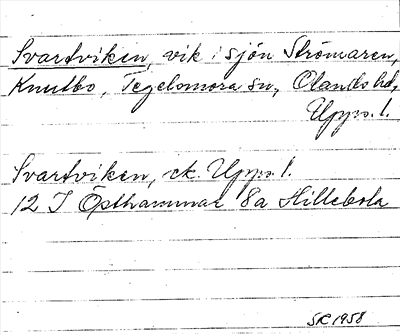 Svartviken, vik i sjön Strömaren,
Knutbo, Tegelsmora sn, Olands hd,
Upps. l.
Svartviken, ek. Upps. l.
12 I Östhammar 8a Hillebola
SK 1958